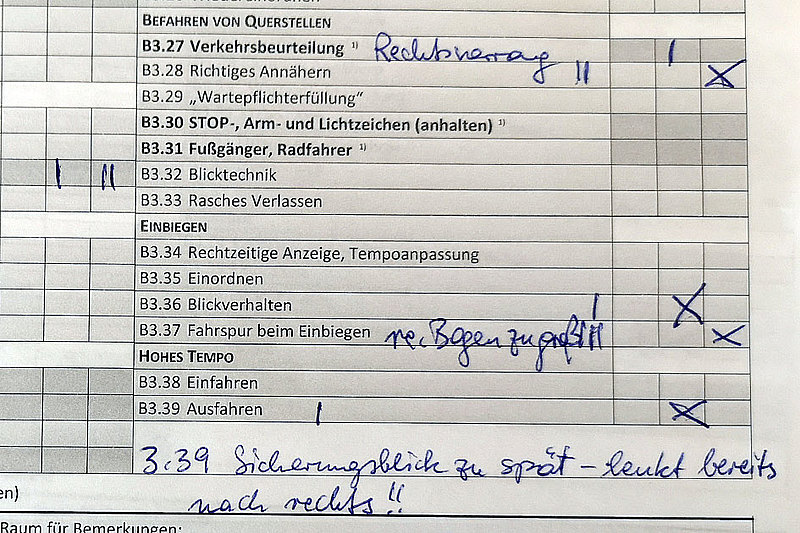 BEFAHREN VON QUERSTELLEN
B3.27 Verkehrsbeurteilung ¹⁾ Rechtsvorrang I
B3.28 Richtiges Annähern II X
B3.29 „Wartepflichterfüllung“
B3.30 STOP-, Arm- und Lichtzeichen (anhalten) ¹⁾
B3.31 Fußgänger, Radfahrer ¹⁾
I II B3.32 Blicktechnik
B3.33 Rasches Verlassen
EINBIEGEN
B3.34 Rechtzeitige Anzeige, Tempoanpassung
B3.35 Einordnen
B3.36 Blickverhalten I X
B3.37 Fahrspur beim Einbiegen re. Bogen zu groß!! X
HOHES TEMPO
B3.38 Einfahren
B3.39 Ausfahren I X
3.39 Sicherungsblick zu spät – lenkt bereits
nach rechts!!
en)
Raum für Bemerkungen: